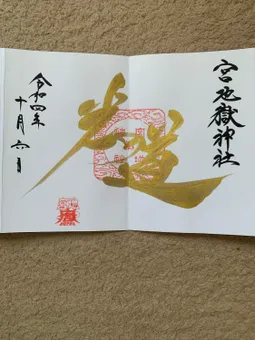 宮地嶽神社
光道
令和四年
十月六日